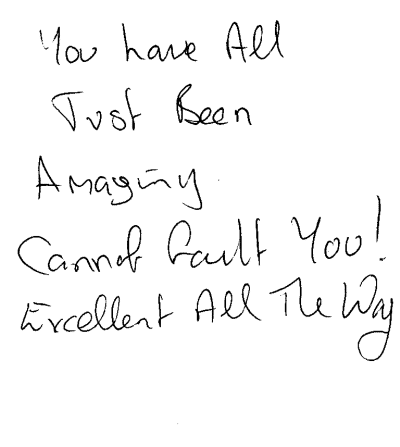 You have All
Just Been
Amazing.
Cannot fault You!
Excellent All The Way